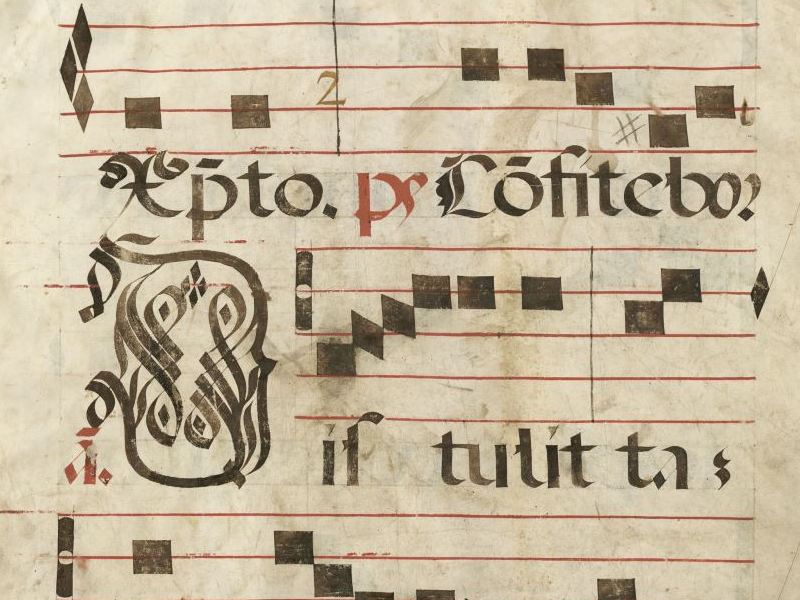 2
Xp̄to. ps Cōfitebor
ā. is tulit tas